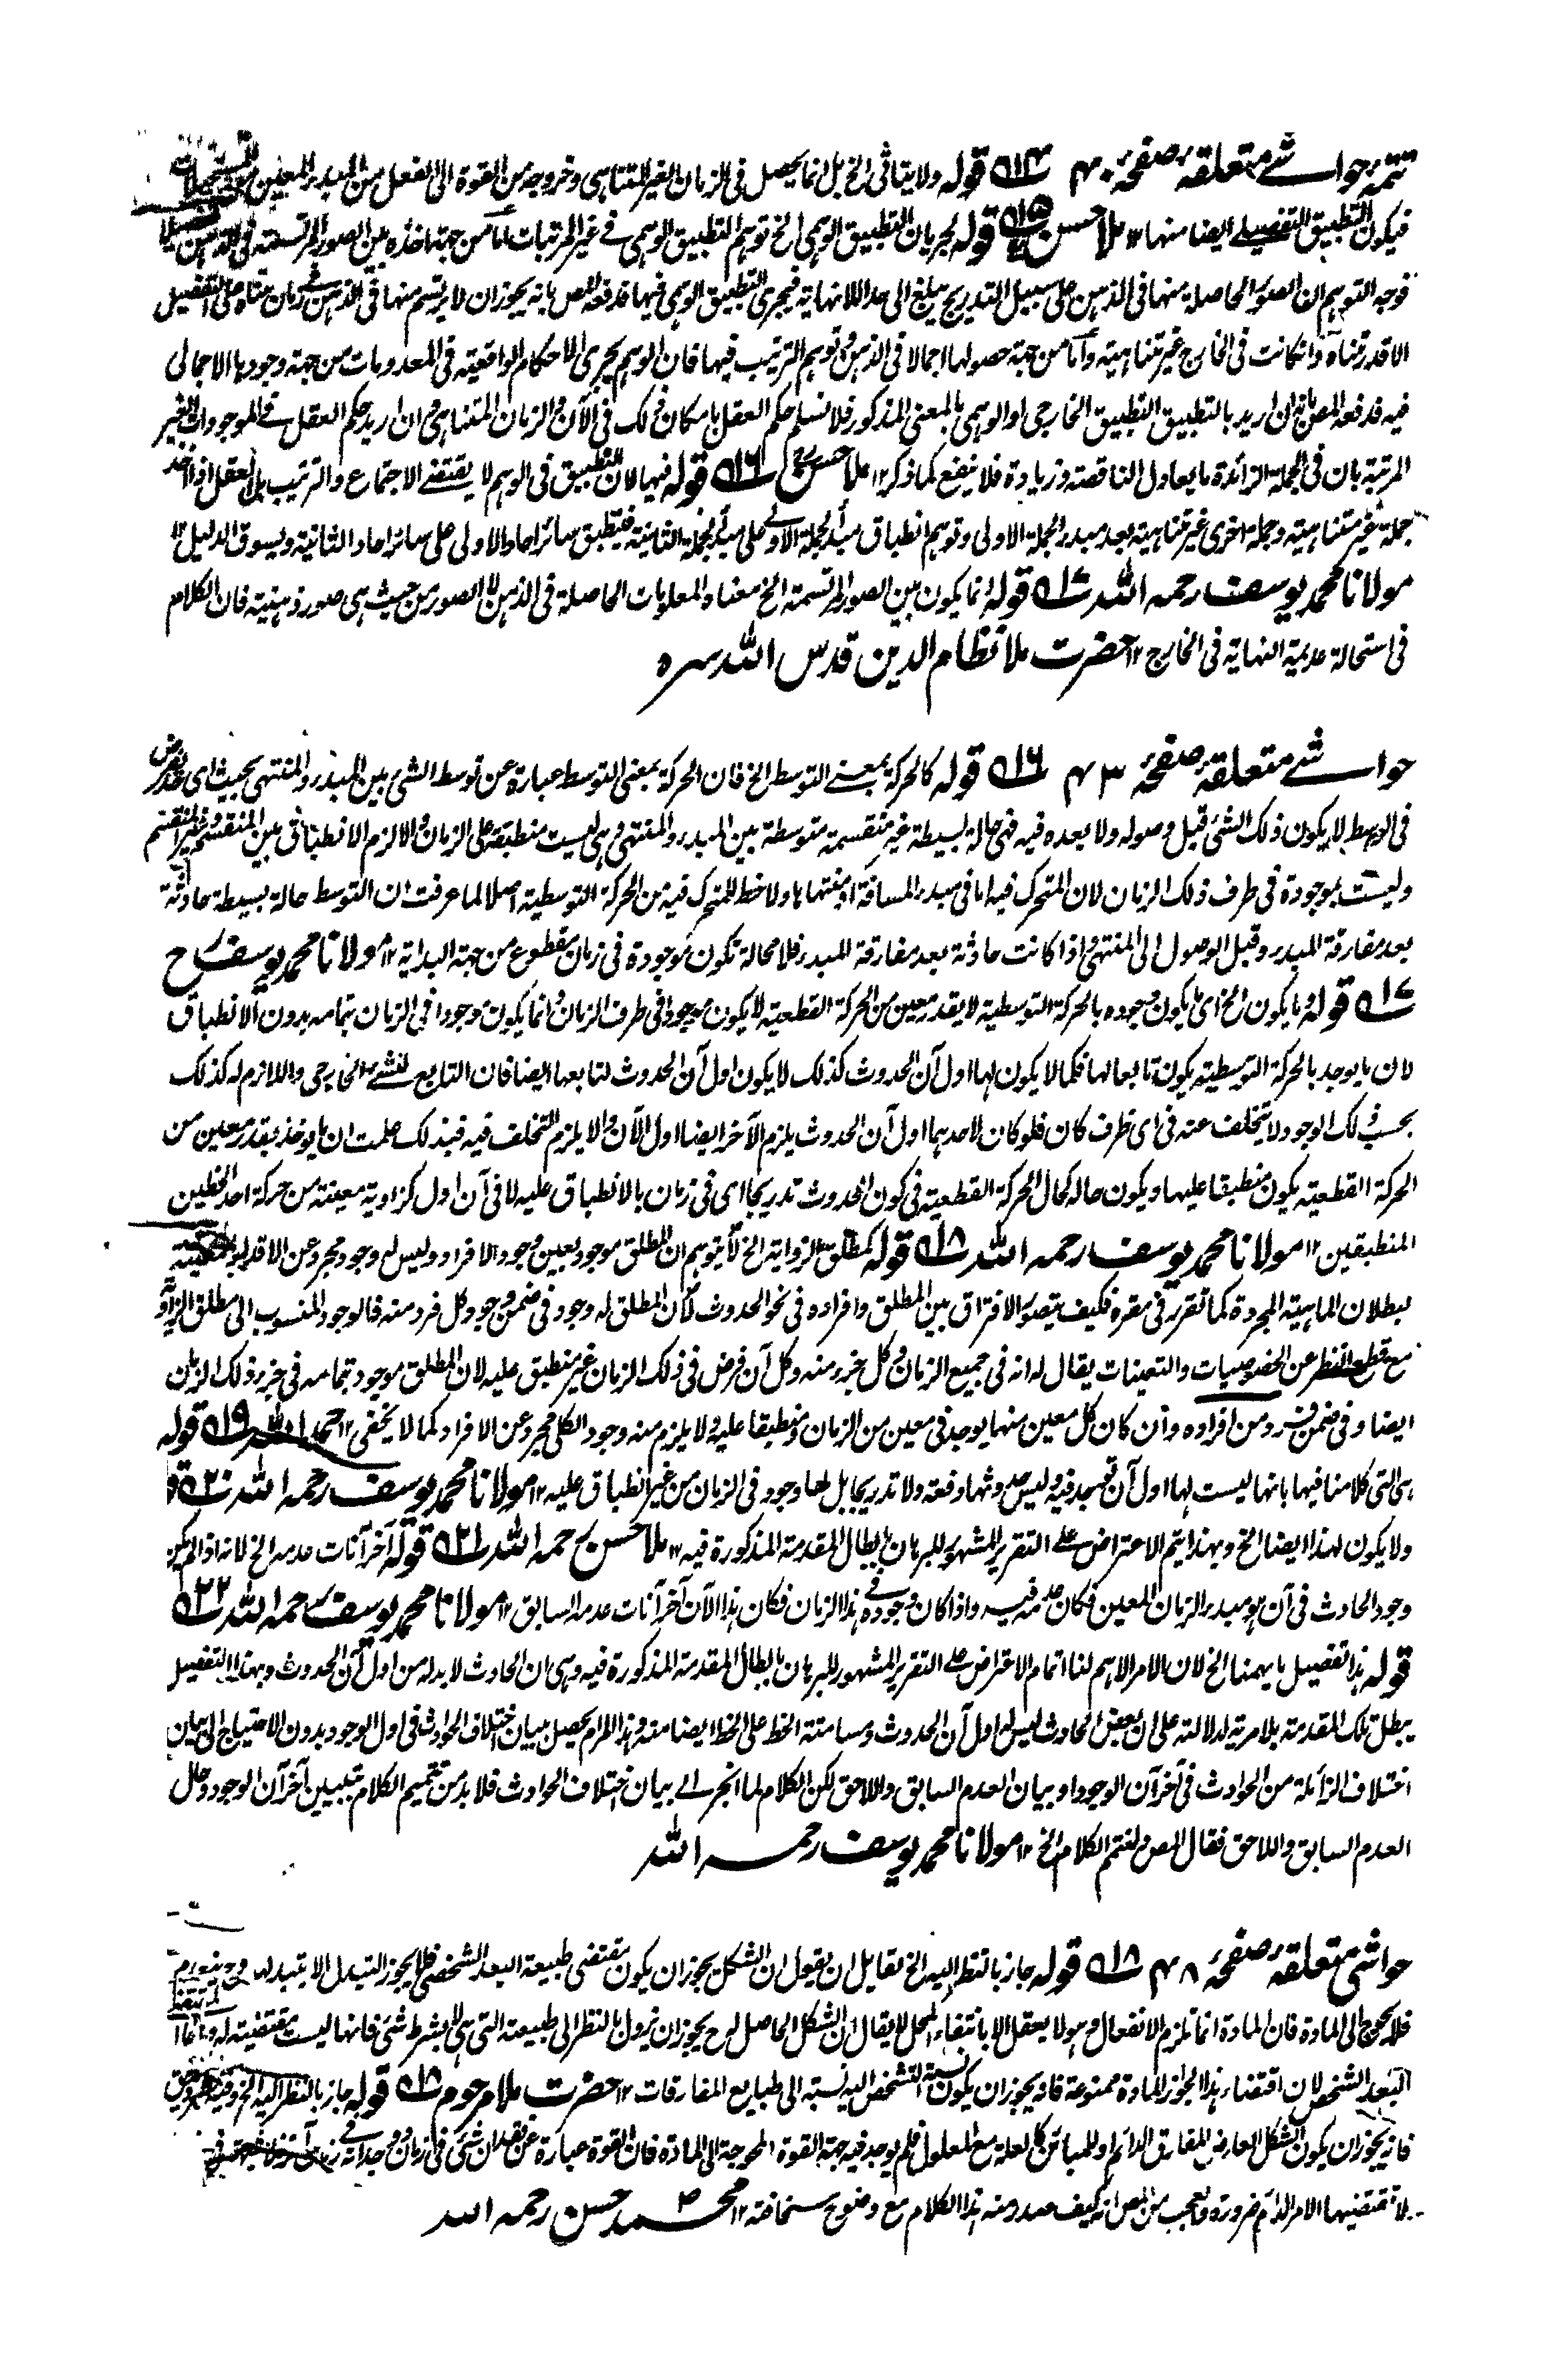 تتمہ حواشے متعلقہ صفحہ ۴۰ ۱۴ قولہ ولا یتأتی الخ بل انما یحصل فی الزمان الغیر المتناہی وخروجہ من القوۃ الی الفعل من المبدء المعین
فیکون التطبیق التفصیلے ایضا منہا ۱۲ ملا حسن ۱۵ قولہ لجریان التطبیق الوہمی الخ توہم التطبیق الوہمی فے غیر المرتبات اما من جہۃ اخذہ بین الصور المرتسمۃ فی الذہن
فوجہ التوہم ان الصور الحاصلۃ منہا فی الذہن علی سبیل التدریج یبلغ الی حد اللانہایۃ فیجری التطبیق الوہمی فیہا فدفعہ المص بانہ یجوز ان لا یرتسم منہا فی الذہن فے زمان متناہ علی التفصیل
الا قدر متناہ وانکانت فی الخارج غیر متناہیۃ واما من جہۃ حصولہا اجمالا فی الذہن وتوہم الترتیب فیہا فان الوہم یجری الاحکام الواقعیۃ فی المعدومات من جہۃ وجودہا الاجمالی
فیہ فدفعہ المص بانہ ان ارید بالتطبیق التطبیق الخارجی او الوہمی بالمعنی المذکور فلا نسلم حکم العقل بامکان ذلک فی الآن والزمان المتناہی وان ارید حکم العقل فے الموجودات الغیر
المرتبۃ بان فی الجملۃ الزائدۃ ما یعادل الناقصۃ وزیادۃ فلا ینفع کما ذکر ۱۲ ملا حسن رح ۱۶ قولہ فیہا لان التطبیق فی الوہم لا یقتضے الاجتماع والترتیب بل العقل اذا اخذ
جملۃ غیر متناہیۃ وجملۃ اخری غیر متناہیۃ بعد مبدء الجملۃ الاولی وتوہم انطباق مبدأ الجملۃ الاولی علی مبدأ الجملۃ الثانیۃ فینطبق سائر احاد الاولی علی سائر احاد الثانیۃ ویسوق الدلیل ۱۲
مولانا محمد یوسف رحمہ اللہ ۱۷ قولہ انما یکون بین الصور المرتسمۃ الخ معناہ المعلومات الحاصلۃ فی الذہن لا الصور من حیث ہی صور ذہنیۃ فان الکلام
فی استحالۃ عدیمۃ النہایۃ فی الخارج ۱۲ حضرت ملا نظام الدین قدس اللہ سرہ
حواشے متعلقہ صفحہ ۴۳ ۱۶ قولہ کالحرکۃ بمعنے التوسط الخ فان الحرکۃ بمعنی التوسط عبارۃ عن توسط الشئ بین المبدء والمنتہی بحیث ای حد یفرض
فی الوسط لا یکون ذلک الشئ قبل وصولہ ولا بعدہ فیہ فہی حالۃ بسیطۃ غیر منقسمۃ متوسطۃ بین المبدء والمنتہی وہی لیست منطبقۃ علی الزمان والا لزم الانطباق بین المنقسم وغیر المنقسم
ولیست بموجودۃ فی طرف ذلک الزمان لان المتحرک فیہ اما فی مبدء المسافۃ او منتہاہا ولا حظ للمتحرک فیہ من الحرکۃ التوسطیۃ اصلا لما عرفت ان التوسط حالۃ بسیطۃ حادثۃ
بعد مفارقۃ المبدء وقبل الوصول الی المنتہی واذا کانت حادثۃ بعد مفارقۃ المبدء فلا محالۃ تکون موجودۃ فی زمان مقطوع من جہۃ البدایۃ ۱۲ مولانا محمد یوسف رح
۱۷ قولہ وما یکون الخ ای ما یکون وجودہ بالحرکۃ التوسطیۃ لا بقدر معین من الحرکۃ القطعیۃ لا یکون موجودا فی طرف الزمان وانما یکون موجودا فی الزمان بتمامہ بدون الانطباق
لان ما یوجد بالحرکۃ التوسطیۃ یکون تابعا لہا فکما لا یکون لہا اول آن الحدوث کذلک لا یکون اول آن الحدوث لتابعہا ایضا فان التابع للشئ الخارجی واللازم لہ کذلک
بحسب ذلک الوجود لا یتخلف عنہ فی ای ظرف کان فلو کان لاحدہما اول آن الحدوث یلزم الآخر ایضا اول الآن والا یلزم التخلف فیہ فبذلک علمت ان ما یوخذ بقدر معین من
الحرکۃ القطعیۃ یکون منطبقا علیہا ویکون حالہ کحال الحرکۃ القطعیۃ فی کون الحدوث تدریجا ای فی زمان بالانطباق علیہ لا فی آن اول کزاویۃ معینۃ من حرکۃ احد الخطین
المنطبقین ۱۲ مولانا محمد یوسف رحمہ اللہ ۱۸ قولہ کمطلق الزاویۃ الخ لا یتوہم ان المطلق موجود بعین وجود الافراد ولیس لہ وجود مجرد عن الافراد
لبطلان الماہیۃ المجردۃ کما تقرر فی مقرہ فکیف یتصور الافتراق بین المطلق وافرادہ فی نحو الحدوث لان المطلق لہ وجود فی ضمن وجود کل فرد منہ فالوجود المنسوب الی مطلق الزاویۃ
مع قطع النظر عن الخصوصیات والتعینات یقال لہ انہ فی جمیع الزمان وکل جزء منہ وکل آن فرض فی ذلک الزمان غیر منطبق علیہ لان المطلق موجود بتمامہ فی جزء ذلک الزمان
ایضا وفی ضمن فرد من افرادہ وان کان کل معین منہا یوجد فی معین من الزمان ومنطبقا علیہ ولا یلزم منہ وجود الکلی مجرد عن الافراد کما لا یخفی ۱۲ حمد اللہ ۱۹ قولہ
ہی التی کلامنا فیہا بانہا لیست لہا اول آن توجد فیہ ولیس حدوثہا دفعۃ ولا تدریجا بل لہا وجود فی الزمان من غیر انطباق علیہ ۱۲ مولانا محمد یوسف رحمہ اللہ ۲۰
ولا یکون لہذا ایضا الخ وبہذا یتم الاعتراض علے التقریر المشہور للبرہان بابطال المقدمۃ المذکورۃ فیہ ۱۲ ملا حسن رحمہ اللہ ۲۱ قولہ آخر آنات عدمہ الخ لانہ اذا لم یکن
وجود الحادث فی آن ہو مبدء الزمان المعین فکان عدمہ فیہ واذا کان وجودہ فے ہذا الزمان فکان ہذا الآن آخر آنات عدمہ السابق ۱۲ مولانا محمد یوسف رحمہ اللہ ۲۲
قولہ ہذا تفصیل ما یہمنا الخ لان الامر الاہم لنا اتمام الاعتراض علے التقریر المشہور للبرہان بابطال المقدمۃ المذکورۃ فیہ وہی ان الحادث لا بد لہ من اول آن الحدوث وبہذا التفصیل
یبطل تلک المقدمۃ بلا مریۃ لدلالتہ علی ان بعض الحادث لیس لہ اول آن الحدوث ومسامتۃ الخط علی الخط ایضا منہ وہذا المرام یحصل ببیان اختلاف الحوادث فی اول الوجود بدون الاحتیاج الی بیان
اختلاف الزائلۃ من الحوادث فی آخر آن الوجود او بیان العدم السابق واللاحق لکن الکلام لما انجر الے بیان اختلاف الحوادث فلا بد من تتمیم الکلام بتبیین آخر آن الوجود وحال
العدم السابق واللاحق فقال المص ولنختم الکلام الخ ۱۲ مولانا محمد یوسف رحمہ اللہ
حواشی متعلقہ صفحہ ۴۸ ۱۸ قولہ جاز بالنظر الیہ الخ لقایل ان یقول ان الشکل یجوز ان یکون مقتضی طبیعۃ البعد الشخصی فلا یجوز التبدل الا بتبدلہ
فلا یحوج الی المادۃ فان المادۃ انما تلزم الانفعال وہو لا یعقل الا بانتفاء المحل لا یقال ان الشکل الحاصل لہ ح یجوز ان یزول بالنظر الی طبیعتہ التی ہی لا بشرط شئ فانہا لیست مقتضیۃ لہ
البعد الشخص لان اقتضاء ہذا الجواز للمادۃ ممنوعۃ فانہ یجوز ان یکون نسبۃ التشخص الیہ نسبۃ الی طبایع المفارقات ۱۲ حضرت ملا مرحوم ۱۸ قولہ جاز بالنظر الیہ الخ
فانہ یجوز ان یکون الشکل العارض للمفارق الدائم او للمباین کالعلۃ مع المعلول فلم یوجد فیہ جہۃ القوۃ المحوجۃ الی المادۃ فان القوۃ عبارۃ عن فقدان شئ فی زمان ووجدانہ فے زمان آخر
لا تقتضیہا الامر الدائم ضرورۃ والعجب من المص انہ کیف صدر منہ ہذا الکلام مع وضوح سخافتہ ۱۲ محمد حسن رحمہ اللہ